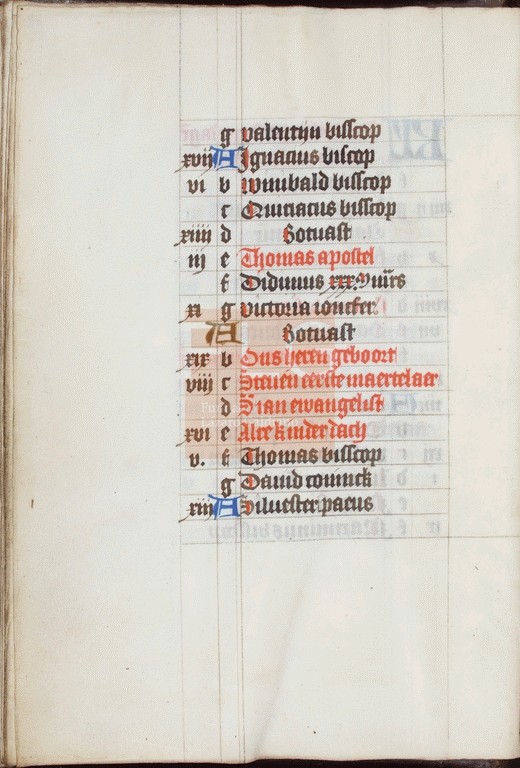 g valentijn bisscop
xvij A Ignacius biscop
vi b wnnibald bisscop
c Quiriacus bisscop
xiiij d
iij e Thomas apostel
f Didimus xxx.M
xi g victoria ioncfer
A
xix b Ons heren geboort
viij c Steuen eerste maertelaer
d S ian ewangelist
xvi e Alre kinder dach
v. f Thomas bisscop
g Dauid coninck
xiij A Siluester paeus